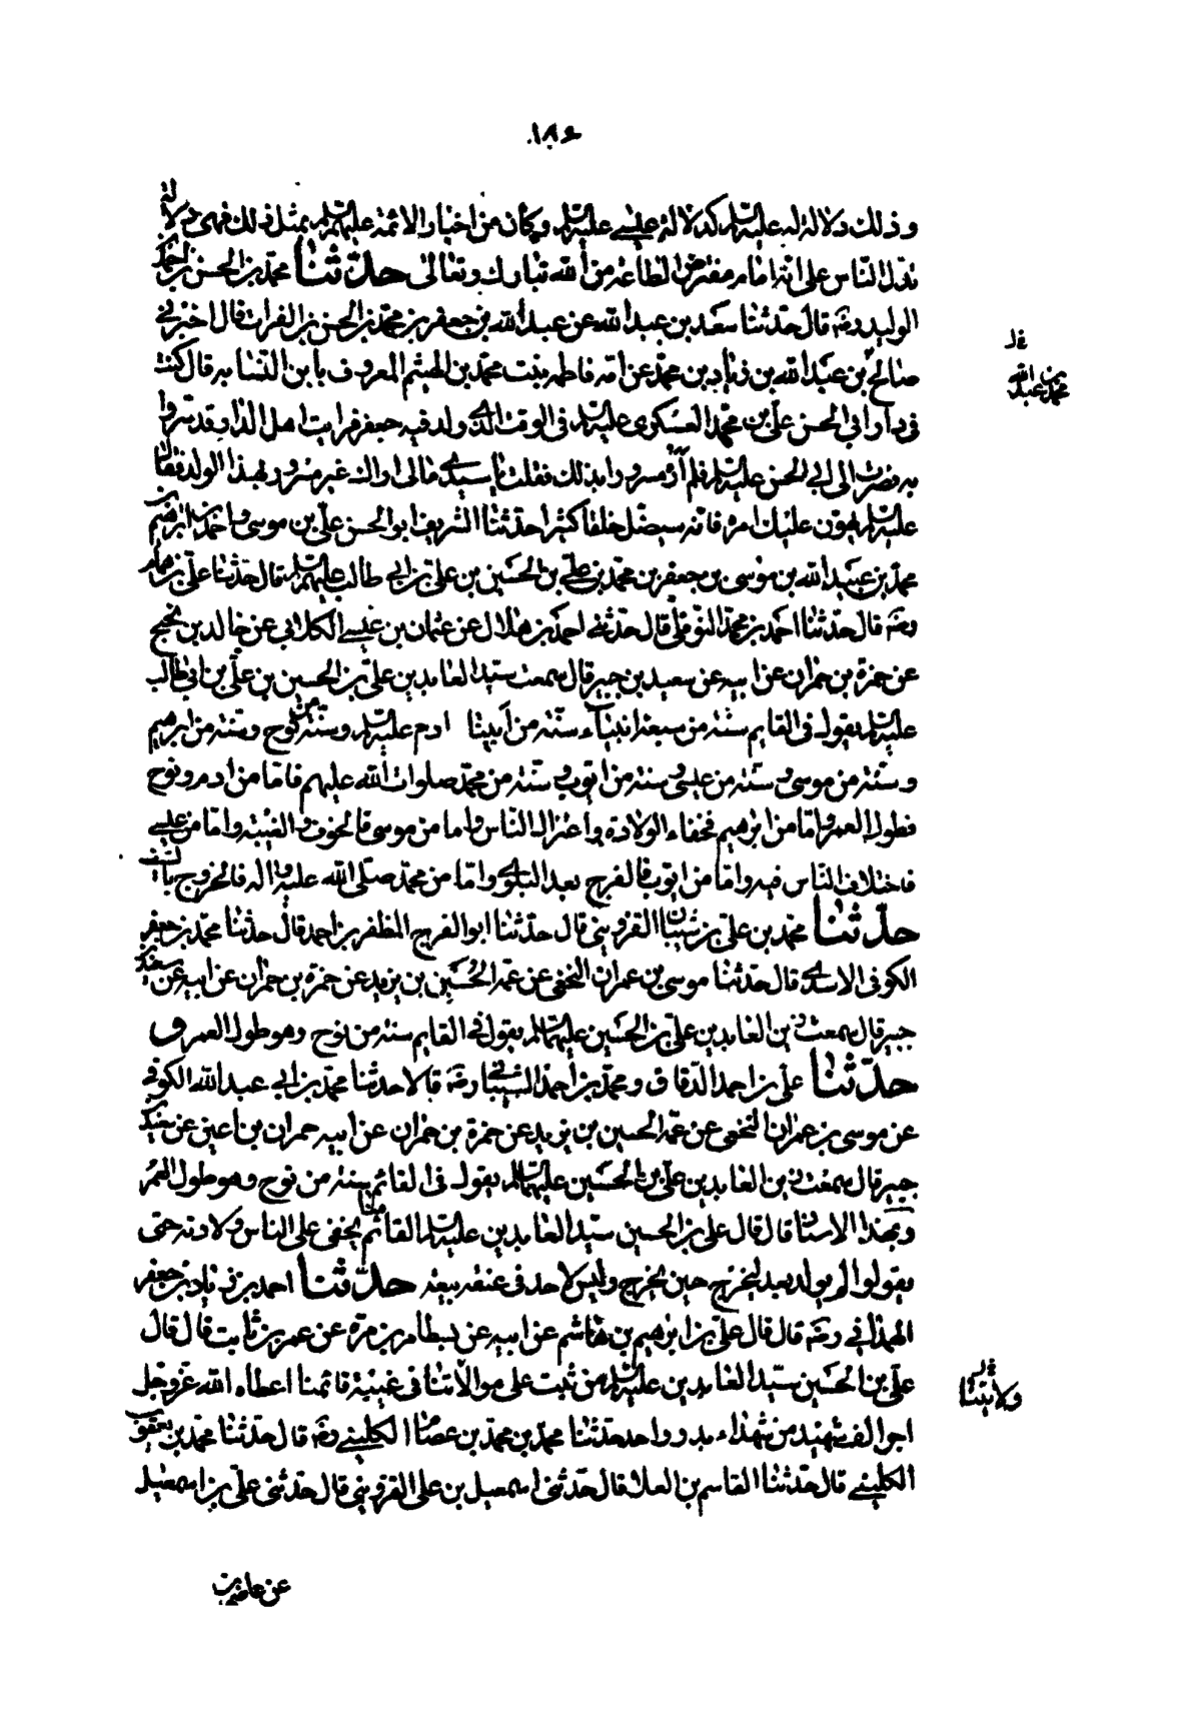 ١٨٤
وذلك دلالة له عليه السلم كدلالة عيسى عليه السلم وكان من اخبار الائمة عليهم السلم بمثل ذلك فهى دلالة
تدل الناس على انه امام مفترض الطاعة من الله تبارك وتعالى حدّثنا محمد بن الحسن بن احمد بن
الوليد رضه قال حدثنا سعد بن عبد الله عن عبد الله بن جعفر بن محمد بن الحسن بن الفرات قال اخبرنى
صالح بن عبد الله بن زياد بن محمد عن امه فاطمه بنت محمد بن الهيثم المعروف بابن النسابه قال كنت
قل
محمد بن عبد الله
فى دار ابي الحسن على بن محمد العسكرى عليه السلم فى الوقت الذى ولد فيه جعفر فرايت اهل الدار قد سروا
به فصرت الى ابي الحسن عليه السلم فلم أره مسرورا بذلك فقلت يا سيدى مالى اراك غير مسرور بهذا الولد فقال
عليه السلم يهون عليك امره فانه سيضل خلقا كثيرا حدثنا الشريف ابو الحسن على بن موسى بن احمد بن ابرهيم بن
محمد بن عبيد الله بن موسى بن جعفر بن محمد بن على بن الحسين بن على بن ابي طالب عليهم السلم قال حدثنا على بن همام
رضه قال حدثنا احمد بن محمد النوفلى قال حدثنى احمد بن هلال عن عثمان بن عيسى الكلابى عن خالد بن نجيح
عن حمزة بن حمران عن ابيه عن سعيد بن جبير قال سمعت سيد العابدين على بن الحسين بن على بن ابى طالب
عليه السلم يقول فى القايم سنة من سبعة انبياء سنة من أبينا ادم عليه السلم وسنة من نوح وسنة من ابرهيم
وسنة من موسى وسنة من عيسى وسنة من ايوب وسنة من محمد صلوات الله عليهم فاما من ادم ونوح
فطول العمر واما من ابرهيم فخفاء الولادة واعتزال الناس واما من موسى فالخوف والغيبة واما من عيسى
فاختلاف الناس فيه واما من ايوب فالفرج بعد البلوى واما من محمد صلى الله عليه واله فالخروج بالسيف
حدّثنا محمد بن على بن شيبان القزوينى قال حدثنا ابو الفرج المظفر بن احمد قال حدثنا محمد بن جعفر
الكوفى الاسدى قال حدثنا موسى بن عمران النخعى عن عمه الحسين بن يزيد عن حمزة بن حمران عن ابيه عن سعيد بن
جبير قال سمعت زين العابدين على بن الحسين عليهما السلم يقول فى القايم سنة من نوح وهو طول العمر و
حدّثنا على بن احمد الدقاق ومحمد بن أحمد الشيبانى رضه قالا حدثنا محمد بن ابي عبد الله الكوفى
عن موسى بن عمران النخعى عن عمه الحسين بن يزيد عن حمزة بن حمران عن ابيه حمران بن اعين عن سعيد بن
جبير قال سمعت زين العابدين على بن الحسين عليهما السلم يقول فى القائم سنة من نوح وهو طول العمر
وبهذا الاسناد قال قال على بن الحسين سيد العابدين عليه السلم القائم منا يخفى على الناس ولادته حتى
يقولوا لم يولد بعد ليخرج حين يخرج وليس لاحد فى عنقه بيعة حدّثنا احمد بن زياد بن جعفر
الهمدانى رضه قال قال على بن ابرهيم بن هاشم عن ابيه عن بسطام بن مره عن عمر بن ثابت قال قال
على بن الحسين سيد العابدين عليه السلم من ثبت على موالاتنا فى غيبة قائمنا اعطاه الله عز وجل
قل
ولايتنا
اجر الف شهيد من شهداء بدر واحد حدثنا محمد بن محمد بن عصام الكلينى رضه قال حدثنا محمد بن يعقوب
الكلينى قال حدثنا القاسم بن العلا قال حدثنى اسمعيل بن على القزوينى قال حدثنى على بن اسمعيل
عن عاصم بن